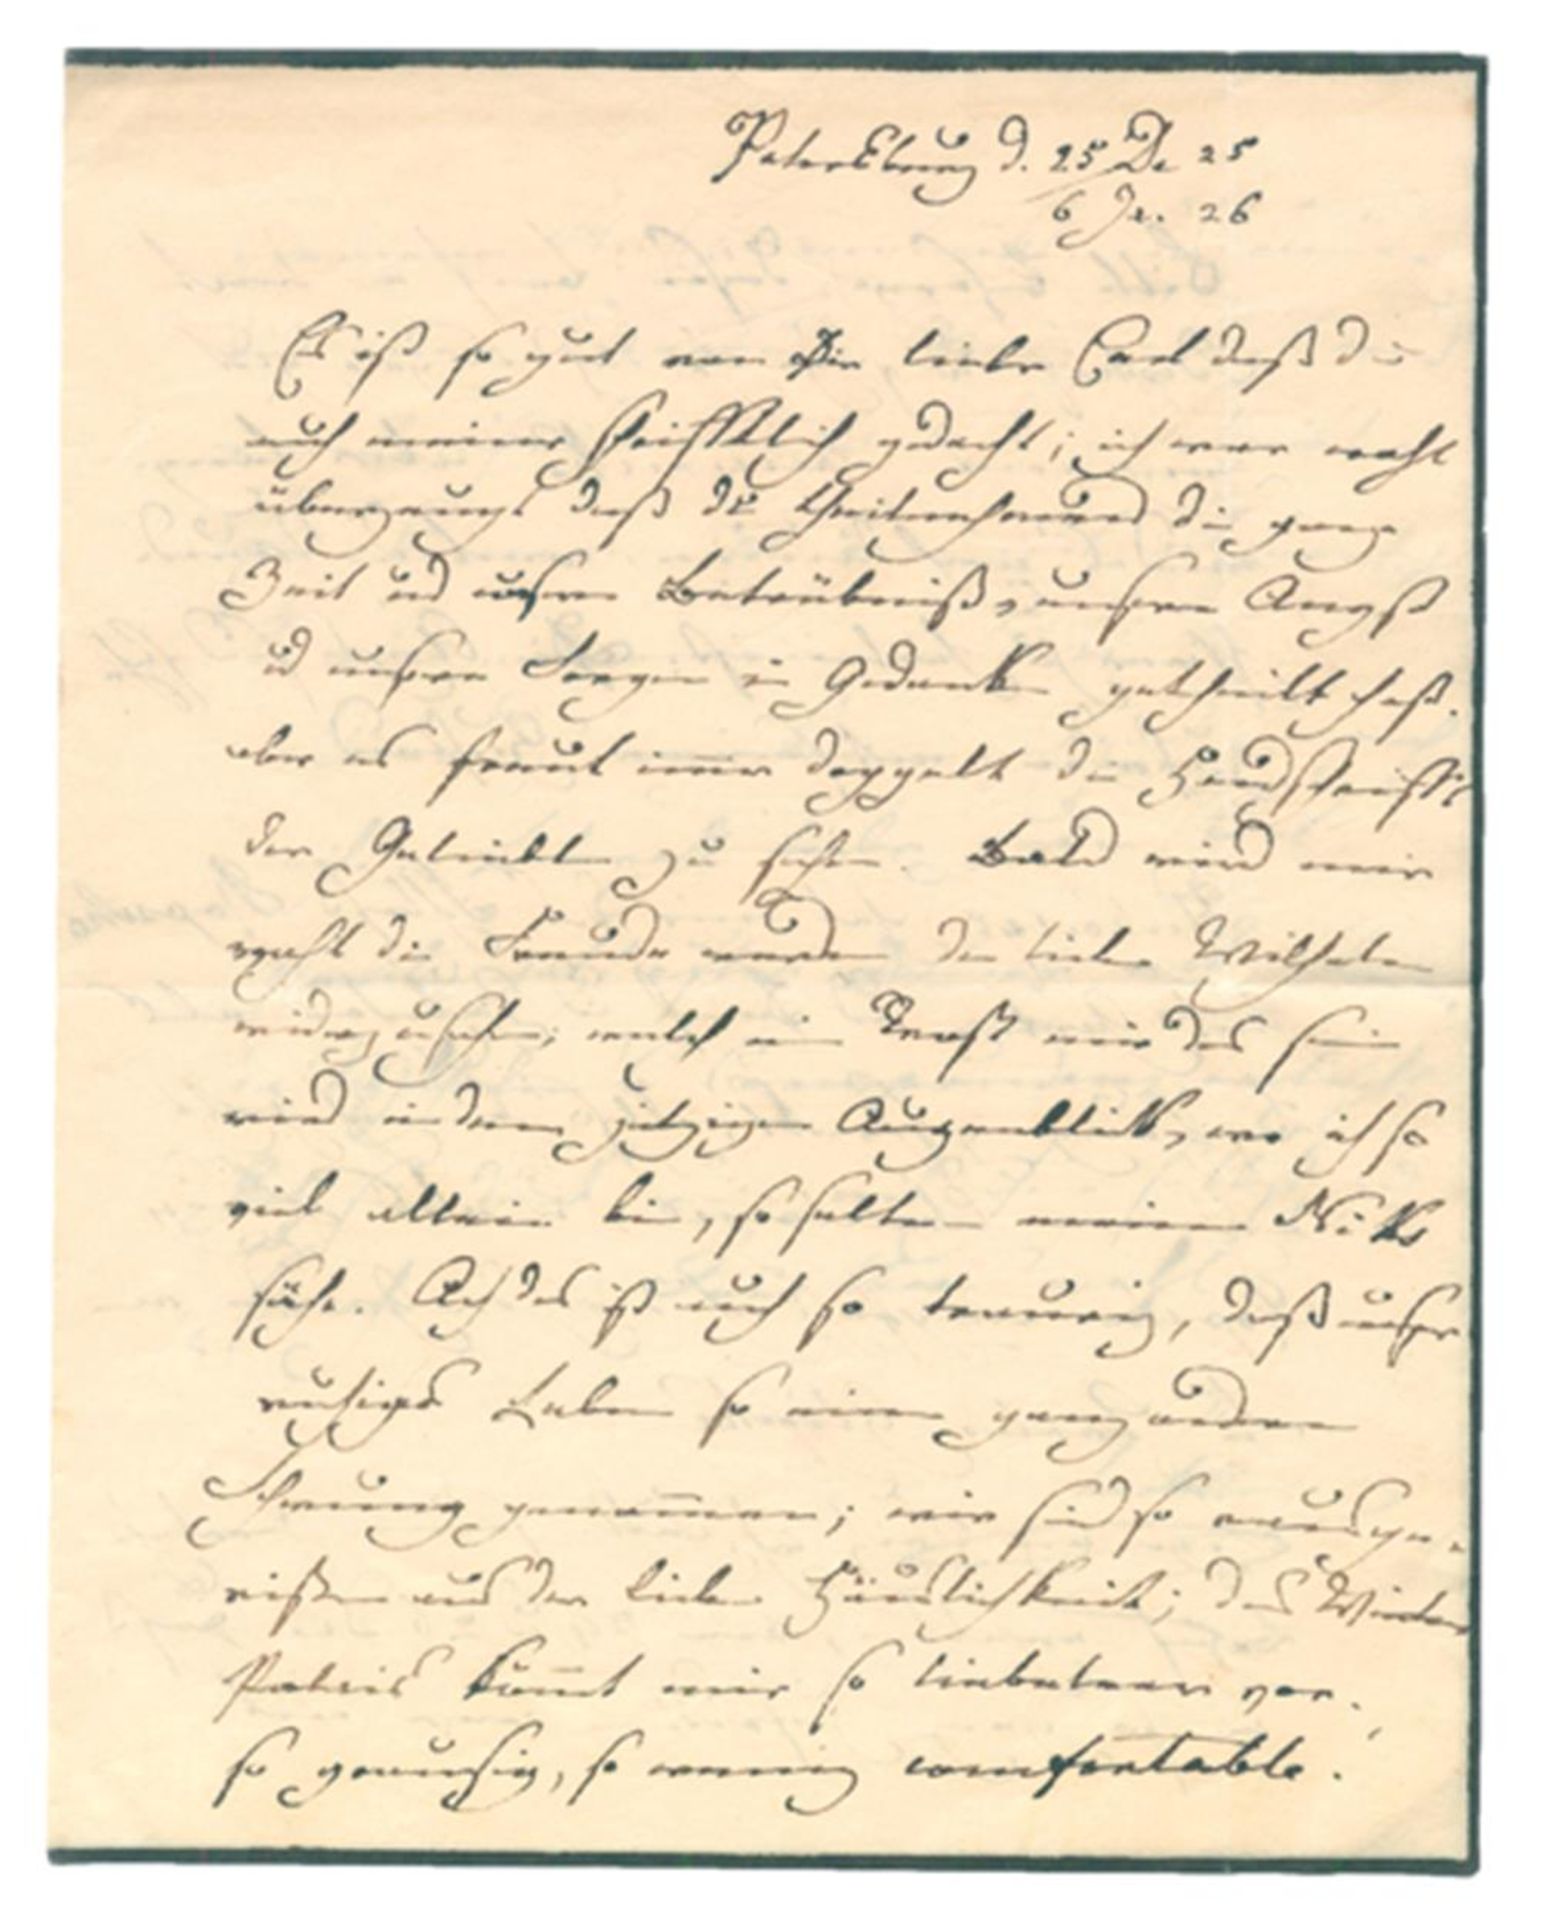 Petersburg d. 25 De 25
6 Ja. 26
Es ist so gut von Dir lieber Carl daß Du
auch meiner schrifftlich gedacht; ich war wohl
überzeugt daß du theilnehmend die ganze
Zeit und unsre Betrübniß, unsere Angst
und unsere Sorgen in Gedanken getheilt hast.
aber es freut immer doppelt die Handschrifft
der Geliebten zu sehen. Bald wird mir
wohl die Freude werden den lieben Wilhelm
wiederzusehen; welch ein Trost mir das sein
wird in dem jetzigen Augenblick, wo ich so
viel allein bin, so selten meinen Niks
sehe. Ach das ist auch so traurig, daß unser
ruhiges Leben so einen ganz andern
Schwung genommen; wir sind so rausge-
rissen aus der lieben Häuslichkeit; das Winter
Palais kommt mir so liebeleer vor.,
so grausig, so wenig comfortable.